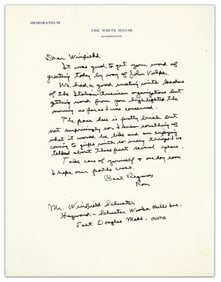 MEMORANDUM
THE WHITE HOUSE
WASHINGTON
Dear Winfield
It was good to get your word of
greeting today by way of John Volpe.
We had a good meeting with leaders
of the Italian-American organizations but
getting word from you highlighted the
morning as far as I was concerned.
The pace here is pretty brisk but
not surprisingly so. I knew something of
what it would be like and am enjoying
coming to grips with so many things we
talked about these past several years.
Take care of yourself & one day soon
I hope our paths cross.
Best Regards
Ron
Mr. Winfield Schuster
Hayward - Schuster Woolen Mills Inc.
East Douglas Mass.